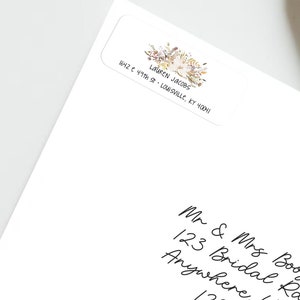 LAUREN JACOBS
1142 E 49TH ST • LOUISVILLE, KY 40041
Mr & Mrs
123 Bridal
Anywhere